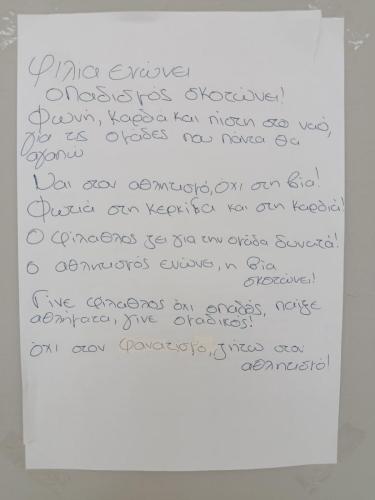 φιλια ενώνει
οπαδισμός σκοτώνει!
Φωνή, καρδιά και πίστη στο ναό,
για τις ομάδες που πάντα θα
αγαπώ
Ναι στον αθλητισμό, όχι στη βία!
Φωτιά στη κερκίδα και στη καρδιά!
Ο φίλαθλος ζει για την ομάδα δυνατά!
ο αθλητισμός ενώνει, η βία
σκοτώνει!
Γίνε φίλαθλος όχι οπαδός, παίξε
αθλήματα, γίνε ομαδικός!
όχι στον φανατισμό, ζήτω στον
αθλητισμό!